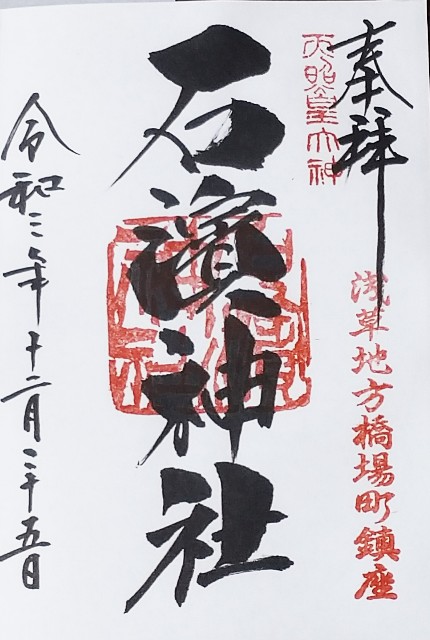 奉拝
天照皇大神
浅草地方橋場町鎮座
石濱神社
令和三年十二月二十五日